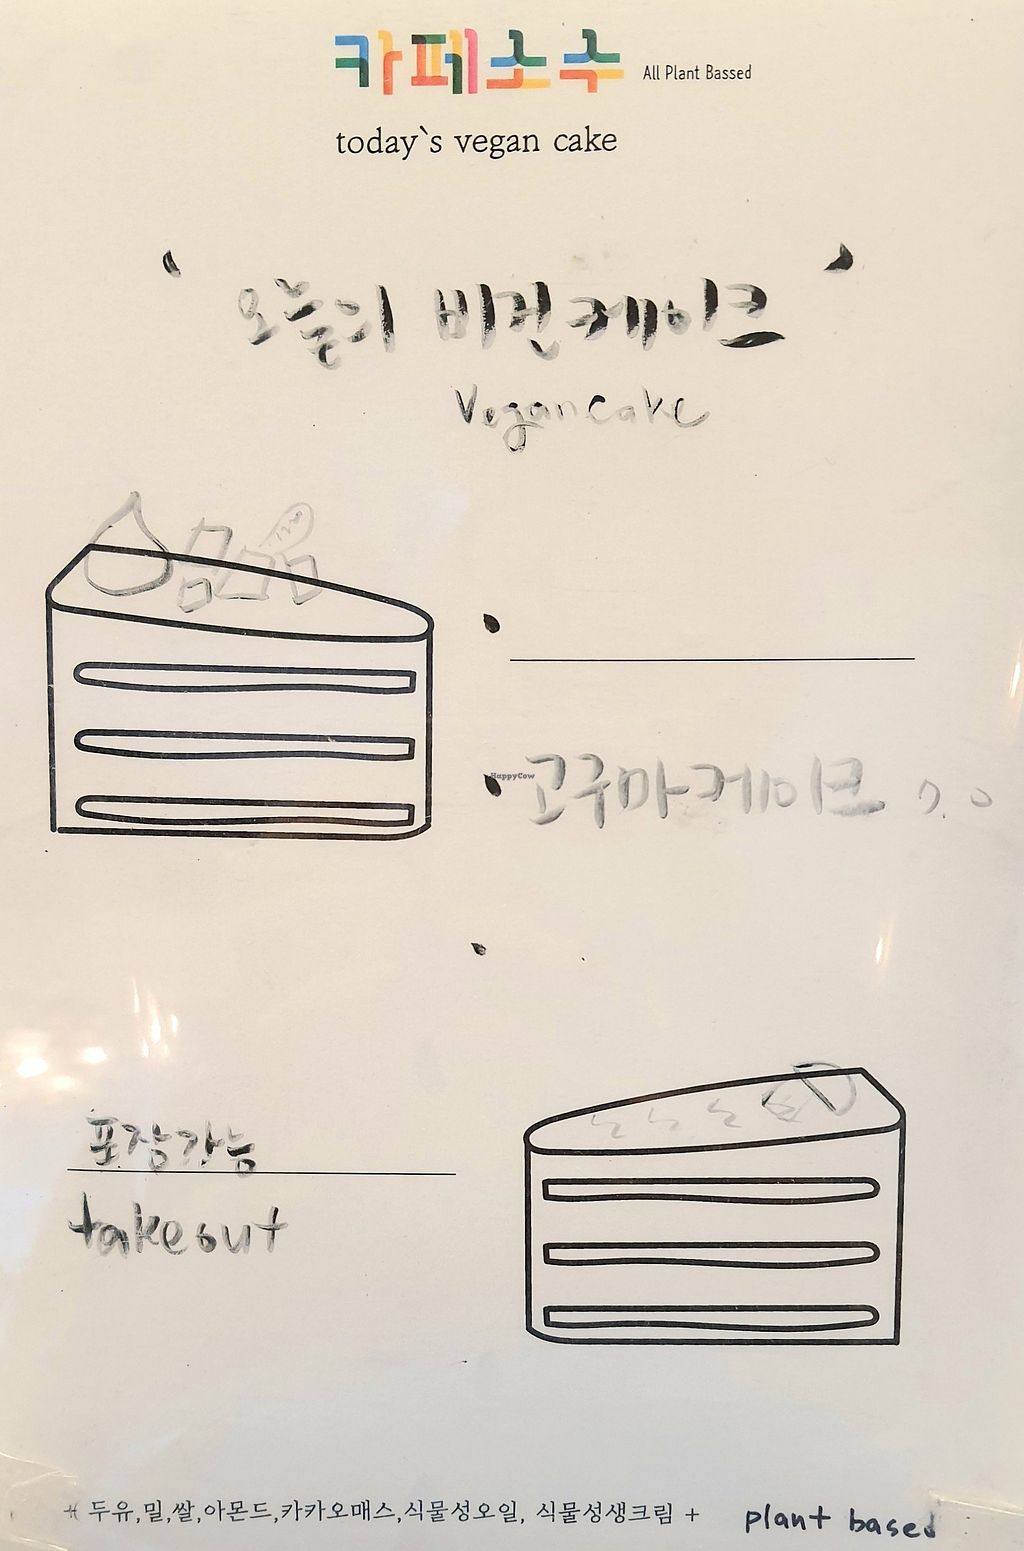 카페소수 All Plant Bassed
today`s vegan cake
' 오늘의 비건케이크 '
Vegan cake
HappyCow
고구마케이크 7.0
포장가능
takeout
두유,밀,쌀,아몬드,카카오매스,식물성오일, 식물성생크림 + plant based